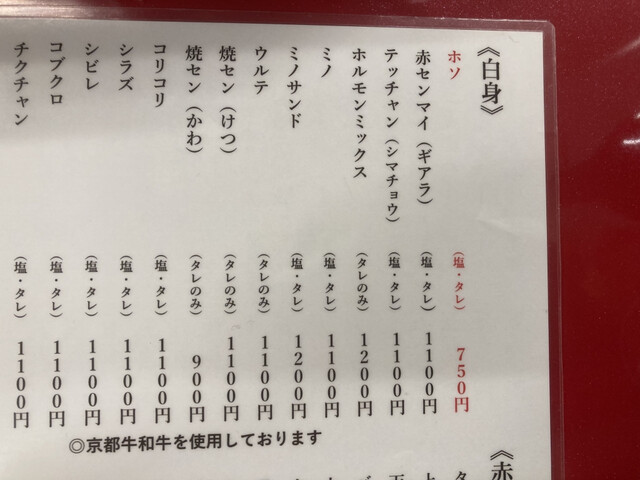 《白身》
ホソ（塩・タレ）750円
赤センマイ（ギアラ）（塩・タレ）1100円
テッチャン（シマチョウ）（塩・タレ）1100円
ホルモンミックス（タレのみ）1200円
ミノ（塩・タレ）1100円
ミノサンド（塩・タレ）1200円
ウルテ（タレのみ）1100円
焼セン（けつ）（タレのみ）1100円
焼セン（かわ）（タレのみ）900円
コリコリ（塩・タレ）1100円
シラズ（塩・タレ）1100円
シビレ（塩・タレ）1100円
コブクロ（塩・タレ）1100円
チクチャン（塩・タレ）1100円
◎京都牛和牛を使用しております
《赤
タ
上